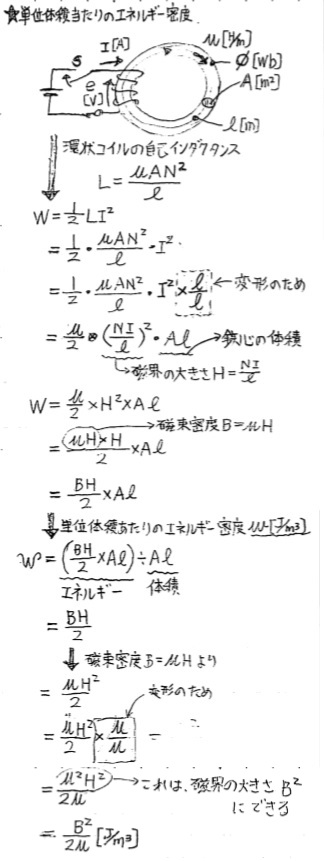 ★単位体積当たりのエネルギー密度
I[A]
μ[H/m]
S
φ[Wb]
A[m²]
e
[V]
l[m]
環状コイルの自己インダクタンス
L = μAN²/l
W = 1/2 LI²
= 1/2・μAN²/l・I²
= 1/2・μAN²/l・I² × l/l ← 変形のため
= μ/2・(NI/l)²・Al → 鉄心の体積
→ 磁界の大きさH = NI/l
W = μ/2 × H² × Al
→ 磁束密度B = μH
= μH×H/2 × Al
= BH/2 × Al
単位体積当たりのエネルギー密度 w[J/m³]
w = (BH/2 × Al) ÷ Al
エネルギー 体積
= BH/2
磁束密度B = μHより
= μH²/2
変形のため
= μH²/2 × μ/μ
= μ²H²/2μ → これは、磁界の大きさ B²
にできる
= B²/2μ [J/m³]